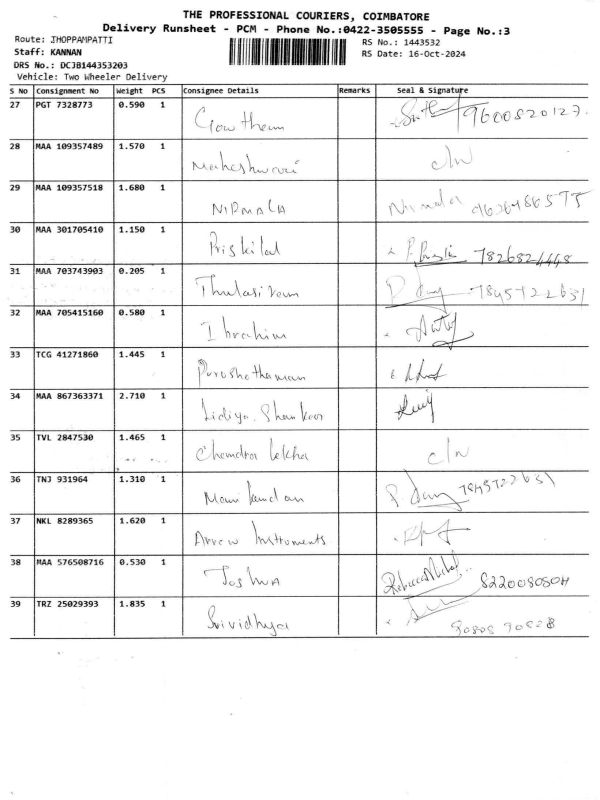 THE PROFESSIONAL COURIERS, COIMBATORE
Delivery Runsheet - PCM - Phone No.:0422-3505555 - Page No.:3
Route: JHOPPAMPATTI RS No.: 1443532
Staff: KANNAN RS Date: 16-Oct-2024
DRS No.: DCJB144353203
Vehicle: Two Wheeler Delivery
S No Consignment No Weight PCS Consignee Details Remarks Seal & Signature
27 PGT 7328773 0.590 1 Gowtham 9600820127
28 MAA 109357489 1.570 1 Maheshwari c/n
29 MAA 109357518 1.680 1 NIRMALA Nirmala
30 MAA 301705410 1.150 1 Priskilal 7826824448
31 MAA 703743903 0.205 1 Thulasiram 7845722631
32 MAA 705415160 0.580 1 Ibrahim
33 TCG 41271860 1.445 1 Purushothaman
34 MAA 867363371 2.710 1 Lidiya Shankar
35 TVL 2847530 1.465 1 Chandra Lekha c/n
36 TNJ 931964 1.310 1 Manikandan 7845722631
37 NKL 8289365 1.620 1 Arrow Instruments
38 MAA 576508716 0.530 1 Joshwa 822008080H
39 TRZ 25029393 1.835 1 Srividhya